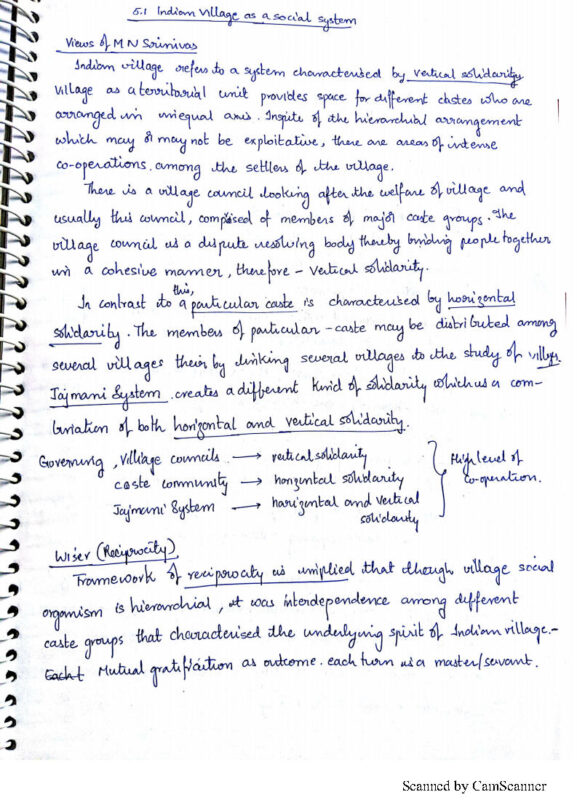 5.1 Indian Village as a social system
Views of M N Srinivas
Indian village refers to a system characterised by vertical solidarity
village as a territorial unit provides space for different castes who are
arranged in unequal axis. Inspite of the hierarchial arrangement
which may or may not be exploitative, there are areas of intense
co-operations. among the settlers of the village.
There is a village council looking after the welfare of village and
usually this council, composed of members of major caste groups. The
village council is a dispute resolving body thereby binding people together
in a cohesive manner, therefore - vertical solidarity.
In contrast to this, a particular caste is characterised by horizontal
solidarity. The members of particular - caste may be distributed among
several villages their by linking several villages to the study of village.
Jajmani System creates a different kind of solidarity which is a com-
bination of both horizontal and vertical solidarity.
Governing, Village councils → vertical solidarity
caste community → horizontal solidarity
Jajmani System → horizontal and vertical solidarity
High level of co-operation.
Wiser (Reciprocity)
Framework of reciprocity is implied that though village social
organism is hierarchial, it was interdependence among different
caste groups that characterised the underlying spirit of Indian village.-
Mutual gratification as outcome. each turn is a master/servant.
Scanned by CamScanner